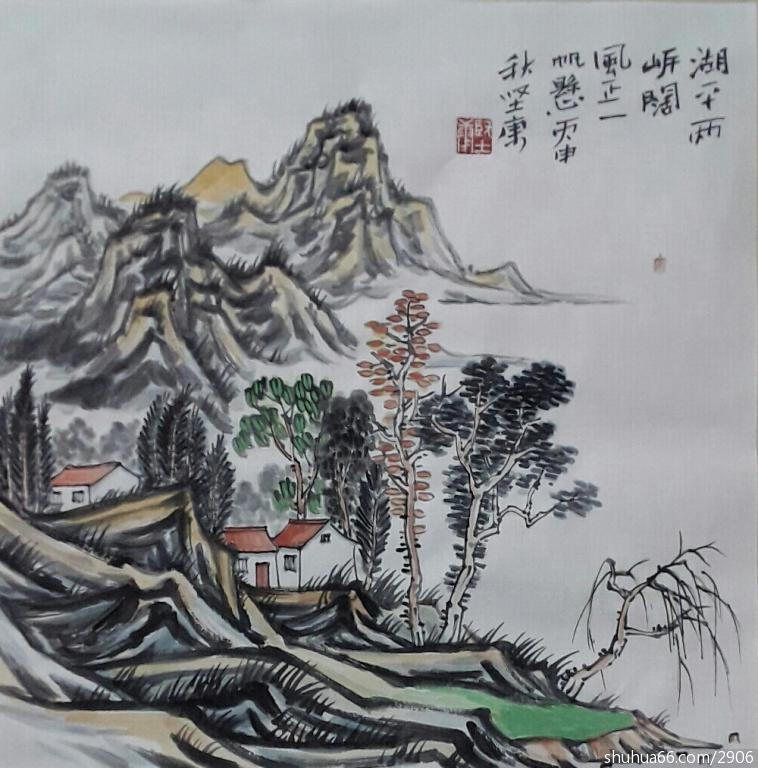 湖平两
岸闊
風正一
帆懸丙申
秋坚康
shuhua66.com/2906